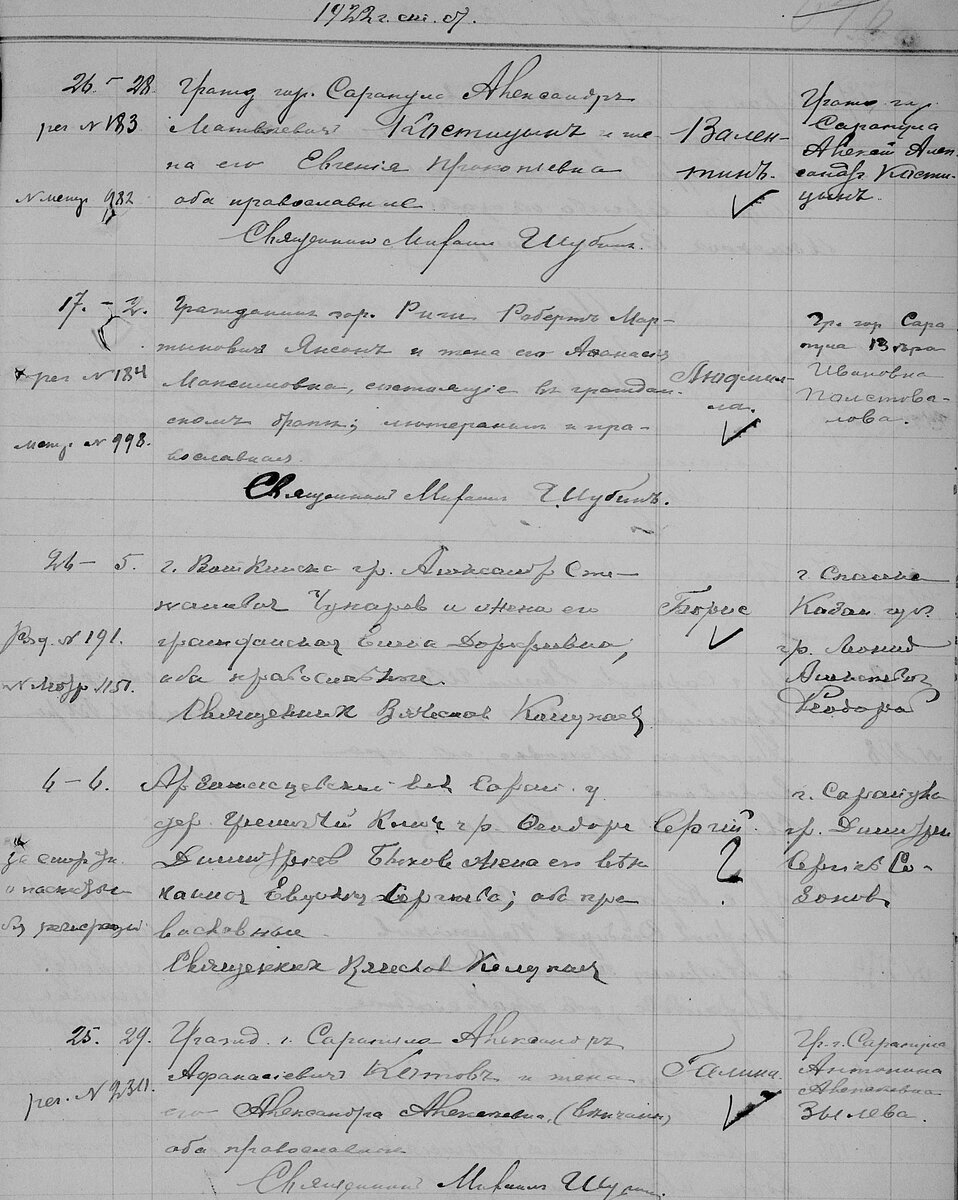 1922 г. ст. ст.
26 – 28
рег № 183
N метр 982
Гражд гор. Сарапула Александръ
Матвѣевич Костицынъ и же-
на его Евгенія Прокопіевна
оба православные
Священник Михаил Шубин.
Вален-
тинъ.
Гражд. гор.
Сарапула
Алексѣй Алек-
сандр. Кости-
цынъ.
17. – 2.
рег № 184
Метр. № 998.
Гражданин гор. Риги Робертъ Мар-
тынович Янсонъ и жена его Афанасія
Максимовна, состоящіе въ граждан-
скомъ бракѣ; лютеранин и пра-
вославная
Священник Михаил Шубинъ.
Людми-
ла.
Гр. гор Сара
пула
Ивановна
Полстова-
лова.
26 – 5.
№ 191.
N 1151.
г. Воткинска гр. Александр Сте-
панович Чукарев и жена его
гражданская Елена Дорофеевна;
оба православные.
Священник Вячеслав
Борис
г. Спасска
Казан. губ.
гр. Леонид
Алексеевич
6 – 6.
вол Сарап. у
дер. Гремячий Ключ гр. Феодор
Димитриев Быков жена его вѣн
чанная Евдокия Сергеева; оба пра
вославные
Священник Вячеслав
Сергiй.
г. Сарапула
гр. Димитрий
Сергеев Со-
зонов
25. 29.
рег. № 230.
Гражд. г. Сарапула Александръ
Афанасіевич Котовъ и жена
его Александра Алексеевна, (вѣнчаны)
оба православные
Священник Михаил Шубин.
Галина.
Гр. г. Сарапула
Антонина
Алексеевна
Зылева.